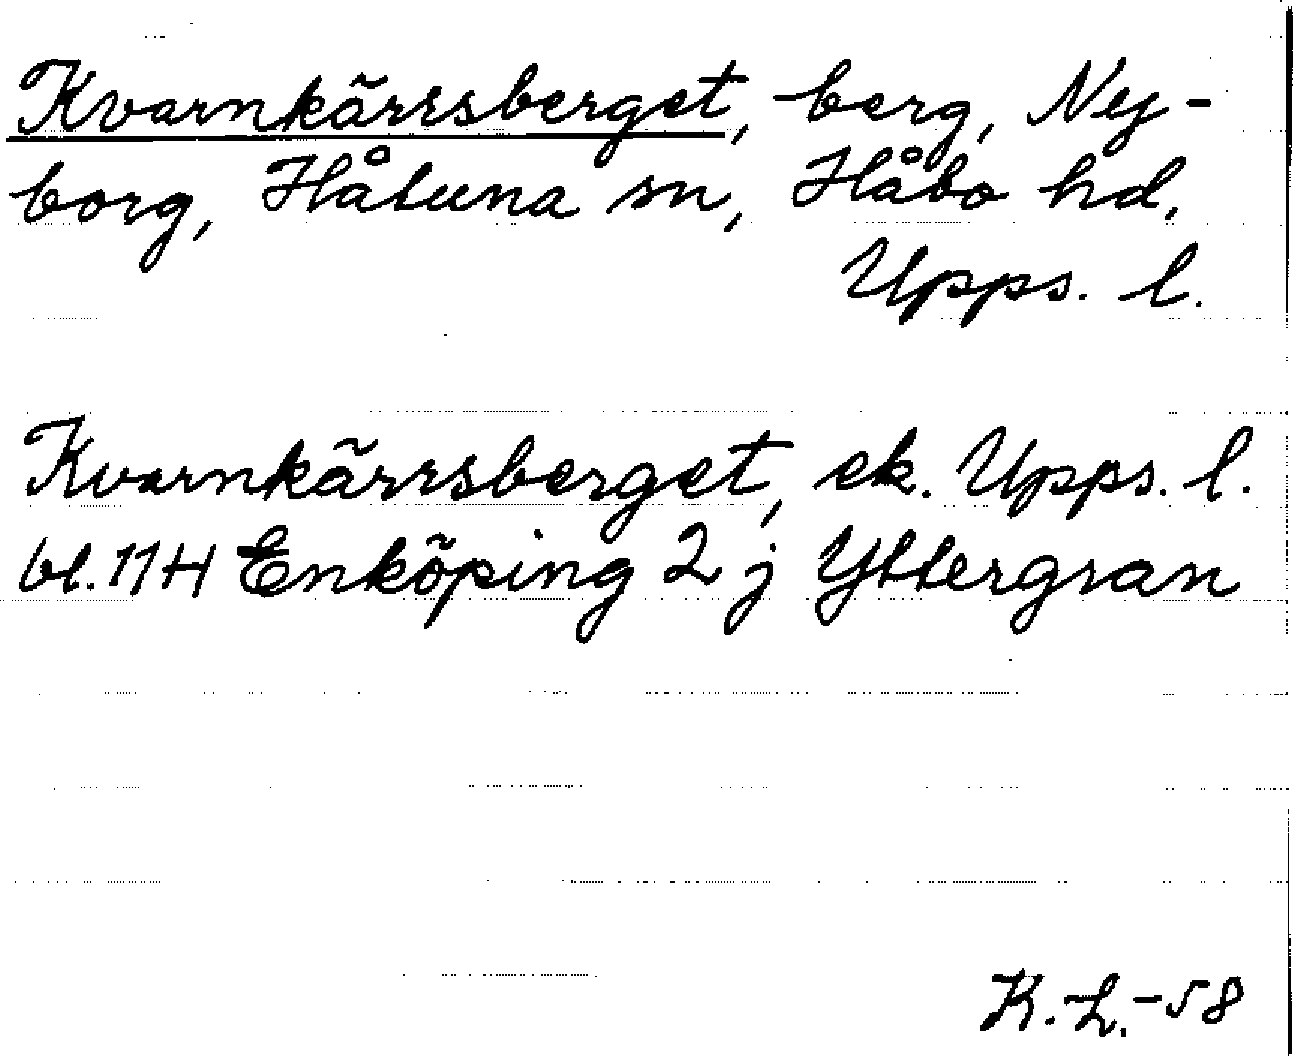 Kvarnkärrsberget, berg, Ny-
borg, Håtuna sn, Håbo hd,
Upps. l.
Kvarnkärrsberget, ek. Upps. l.
bl. 11H Enköping 2 j Yttergran
K.-L.-58